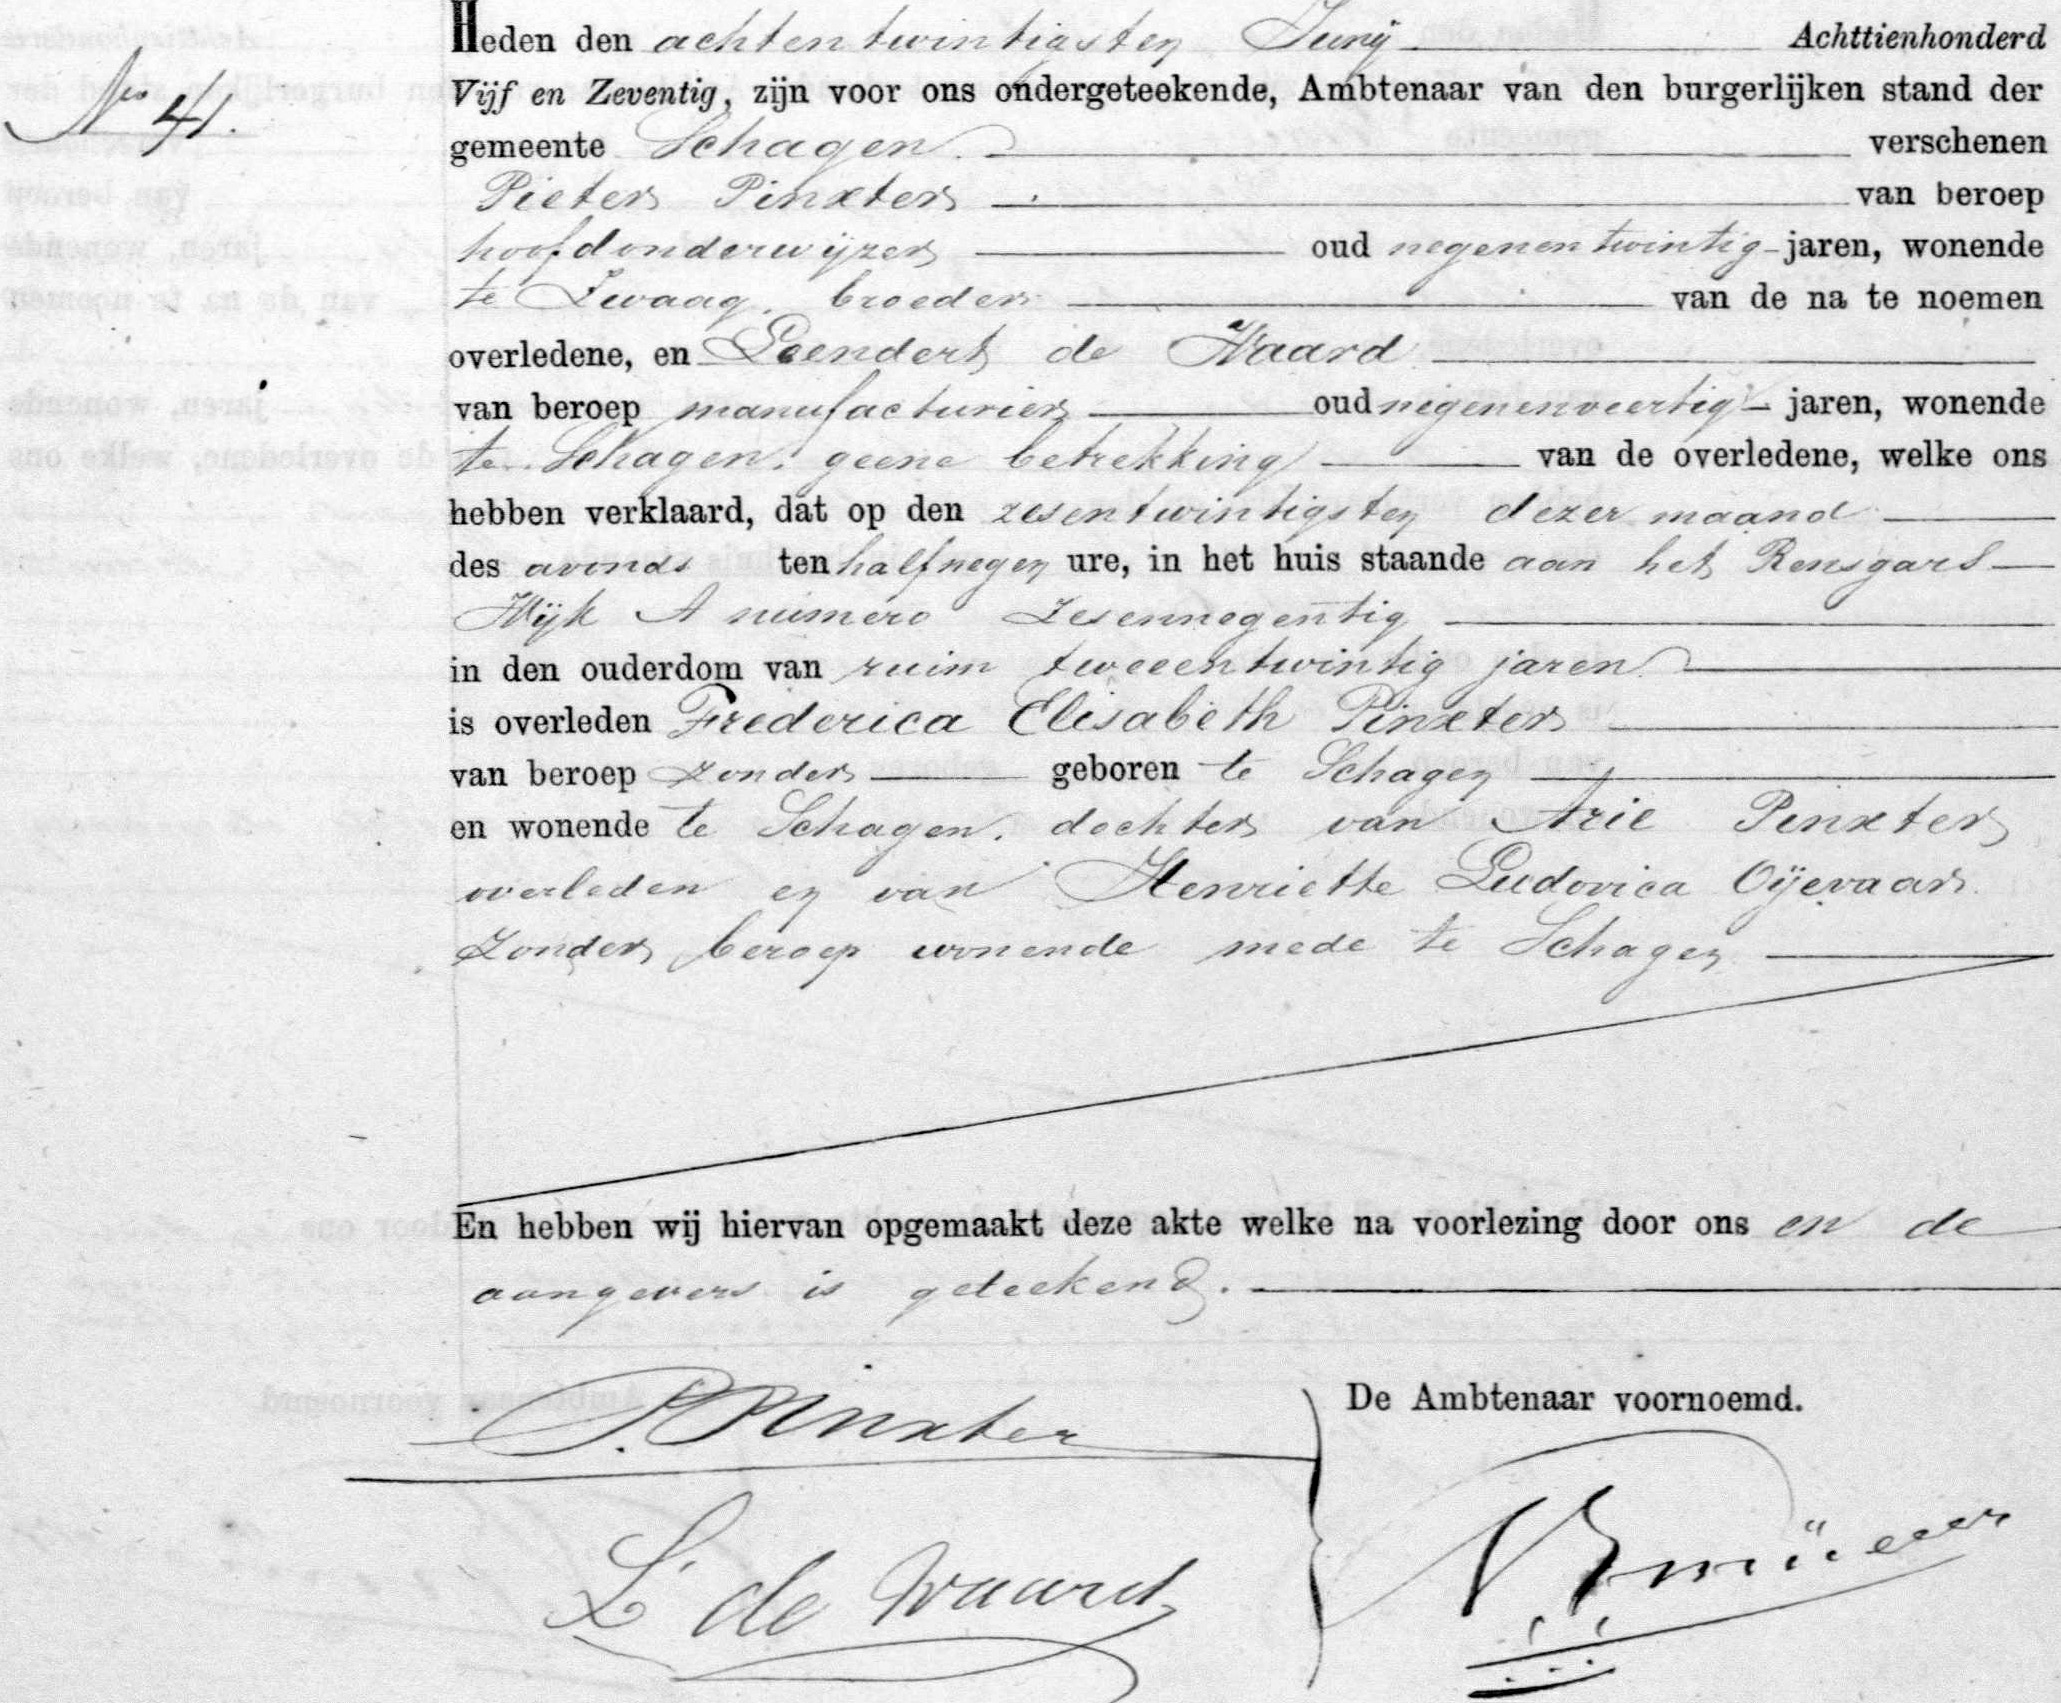 No 41.
Heden den achtentwintigsten Junij Achttienhonderd
Vijf en Zeventig, zijn voor ons ondergeteekende, Ambtenaar van den burgerlijken stand der
gemeente Schagen verschenen
Pieter Pinxter van beroep
hoofdonderwijzer oud negenentwintig jaren, wonende
te Zwaag, broeder van de na te noemen
overledene, en Leendert de Waard
van beroep manufacturier oud negenenveertig jaren, wonende
te Schagen, geene betrekking van de overledene, welke ons
hebben verklaard, dat op den zesentwintigsten dezer maand
des avonds ten halfnegen ure, in het huis staande aan het Rensgars
Wijk A numero zesennegentig
in den ouderdom van ruim tweeentwintig jaren
is overleden Frederica Elisabeth Pinxter
van beroep zonder geboren te Schagen
en wonende te Schagen, dochter van Arie Pinxter
overleden en van Henriette Ludovica Oijevaar
zonder beroep wonende mede te Schagen
En hebben wij hiervan opgemaakt deze akte welke na voorlezing door ons en de
aangevers is geteekend.
P. Pinxter
De Ambtenaar voornoemd.
L de Waard